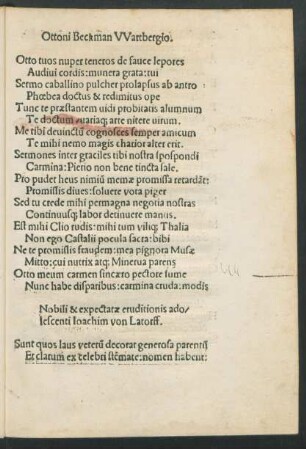 Ottoni Beckman VVartbergio.
Otto tuos nuper teneros de fauce lepores
Audiui cordis: munera grata: tui
Sermo caballino pulcher prolapsus ab antro
Phœbea doctus & redimitus ope
Tunc te præstantem uidi probitatis alumnum
Te doctum uariaq; arte nitere uirum.
Me tibi deuinctū cognosces semper amicum
Te mihi nemo magis charior alter erit.
Sermones inter graciles tibi nostra spospondi
Carmina: Pierio non bene tincta sale.
Pro pudet heus nimiū memæ promissa retardāt:
Promissis diues: soluere vota piger
Sed tu crede mihi permagna negotia nostras
Continuusq; labor detinuere manus.
Est mihi Clio rudis: mihi tum viliq; Thalia
Non ego Castalii pocula sacra: bibi
Ne te promissis fraudem: mea pignora Musæ
Mitto: cui nutrix atq; Minerua parens
Otto meum carmen sincæro pectore sume
Nunc habe disparibus: carmina cruda: modis
Nobili & expectatæ eruditionis ado/
lescenti Ioachim von Latorff.
Sunt quos laus veterū decorat generosa parentū
Et clatum ex celebri stēmate: nomen habent: